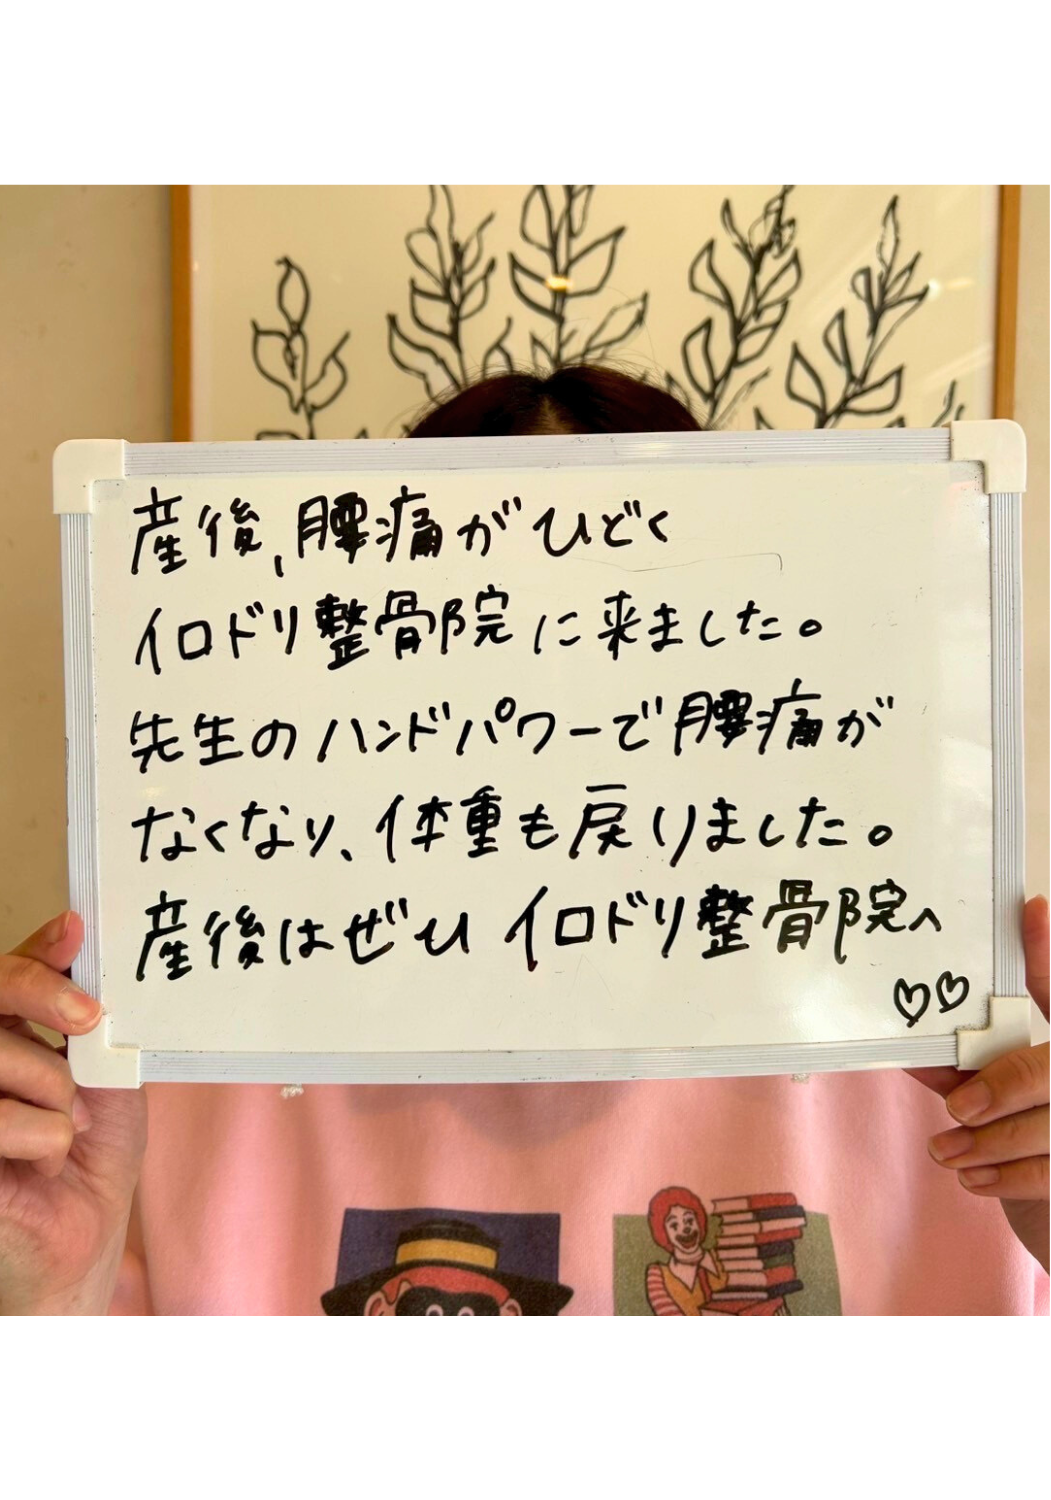 産後、腰痛がひどく
イロドリ整骨院に来ました。
先生のハンドパワーで腰痛が
なくなり、体重も戻りました。
産後はぜひ イロドリ整骨院へ
♡♡